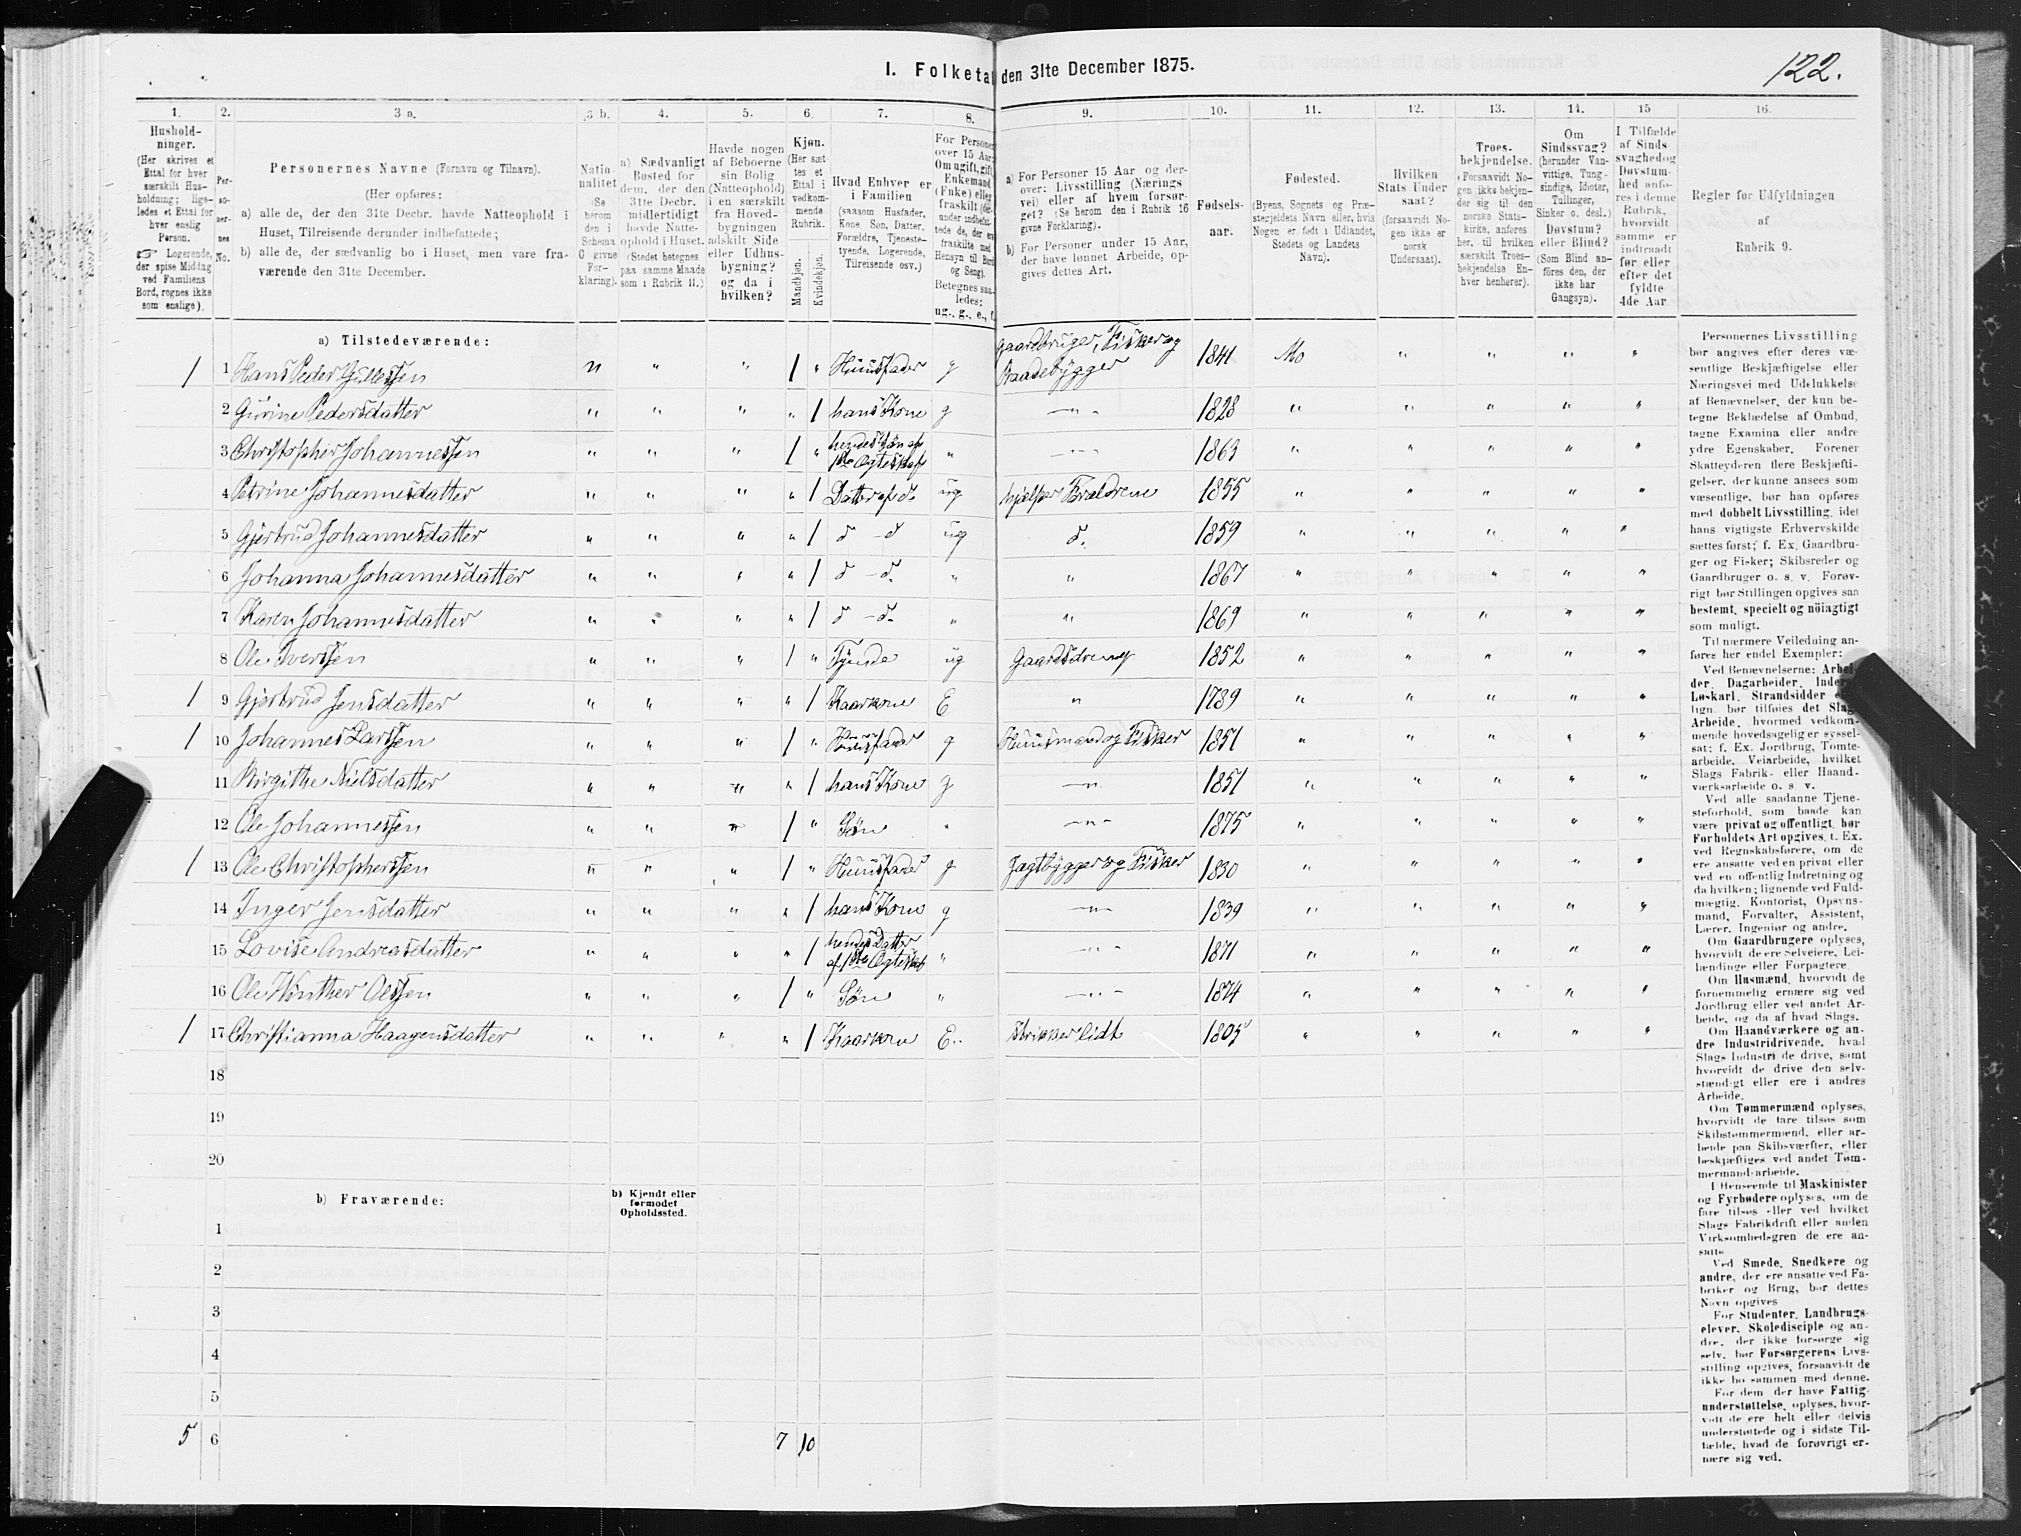 I. Folketal den 31te December 1875.
122.
1. 2. 3 a. 3 b. 4. 5. 6. 7. 8. 9. 10. 11. 12. 13. 14. 15 16.
Husholdninger. (Her skrives et Ettal for hver særskilt Husholdning; ligeledes et Ettal for hver enslig Person.
☞ Logerende, der spise Middag ved Familiens Bord, regnes ikke som enslige).
Personernes No.
Personernes Navne (Fornavn og Tilnavn).
(Her opføres:
a) alle de, der den 31te Decbr. havde Natteophold i Huset, Tilreisende derunder indbefattede;
b) alle de, der sædvanlig bo i Huset, men vare fraværende den 31te December.
Nationalitet (Se herom den i Schema G givne Forklaring).
a) Sædvanligt Bosted for dem, der den 31te Decbr. midlertidigt havde Natteophold i Huset. (Stedet betegnes paa samme Maade som i Rubrik 11.)
Havde nogen af Beboerne sin Bolig (Natteophold) i en særskilt fra Hovedbygningen adskilt Side- eller Udhusbygning? og da i hvilken?
Kjøn. (Her sættes et Ettal i vedkommende Rubrik.
Mandkjøn. Kvindekjøn.
Hvad Enhver er i Familien (saasom Husfader, Kone, Søn, Datter, Forældre, Tjenestetyende, Logerende, Tilreisende osv.)
For Personer over 15 Aar: Om ugift, gift, Enkemand (Enke) eller fraskilt (derunder indbefattede de, der ere fraskilte med Hensyn til Bord og Seng). Betegnes saaledes: ug., g., e., f.
a) For Personer 15 Aar og derover: Livsstilling (Næringsvei) eller af hvem forsørget? (Se herom de i Rubrik 16 givne Forklaring).
b) For Personer under 15 Aar, der have lønnet Arbeide, opgives dettes Art.
Fødselsaar.
Fødested. (Byens, Sognets og Præstegjeldets Navn eller, hvis Nogen er født i Udlandet, Stedets og Landets Navn).
Hvilken Stats Undersaat? (forsaavidt Nogen ikke er norsk Undersaat).
Troesbekjendelse. (Forsaavidt Nogen ikke bekjender sig til den norske Statskirke, anføres her, til hvilken særskilt Troesbekjendelse Enhver henhører).
Om Sindssvag? (herunder Vanvittige, Tungsindige, Idioter, Tullinger, Sinker o. desl.) Døvstum? eller Blind? (Som Blind anføres den, der ikke har Gangsyn).
I Tilfælde af Sindssvaghed og Døvstumhed anføres i denne Rubrik, hvorvidt samme er indtraadt før eller efter det fyldte 4de Aar
Regler for Udfyldningen af Rubrik 9.
a) Tilstedeværende:
1 1 Hans Peder n " " 1 " Huusfader g Gaardbruger, Fisker og Baadebygger 1841 Mo " " " "
2 Gurine Pedersdatter " " " " 1 hans Kone g -"- 1828 " " " " "
3 Christopher Johannessen " " " 1 " hendes Søn af 1ste Ægteskab " -"- 1863 " " " " "
4 Petrine Johannesdatter " " " " 1 Datter af do ug hjælper Forældrene 1855 " " " " "
5 Gjertrud Johannesdatter " " " " 1 d - d ug d. 1859 " " " " "
6 Johanna Johannesdatter " " " " 1 d - d. " " 1867 " " " " "
7 Karen Johannesdatter " " " " 1 d - d. " " 1869 " " " " "
8 Ole Iverssen " " " 1 " Tyende ug Gaardsdreng 1852 " " " " "
1 9 Gjertrud Jensdatter " " " " 1 Kaarkone E " 1789 " " " " "
1 10 Johannes Larssen " " " 1 " Huusfader g Huusmand og Fisker 1851 " " " " "
11 Birgithe Nielsdatter " " " " 1 hans Kone g -"- 1851 " " " " "
12 Ole Johannessen " " " 1 " Søn " -"- 1875 " " " " "
1 13 Ole Christopherssen " " " 1 " Huusfader g Jagtbygger og Fisker 1830 " " " " "
14 Inger Jensdatter " " " " 1 hans Kone g -"- 1839 " " " " "
15 Lovise Andreasdatter " " " " 1 hendes Datter af 1ste Ægteskab " -"- 1871 " " " " "
16 Ole Winther Olssen " " " 1 " Søn " -"- 1874 " " " " "
1 17 Christianna Haagensdatter " " " " 1 Kaarkone E. Strikker lidt 1805 " " " " "
18
19
20
b) Fraværende:
b) Kjendt eller formodet Opholdssted.
1
2
3
4
5
5 6 7 10
Personernes Livsstilling
bør angives efter deres væ-
sentlige Beskjæftigelse eller
Næringsvei med Udelukkelse
af Benævnelser, der kun be-
tegne Beklædelse af Ombud,
tagne Examina eller andre
ydre Egenskaber. Forener
Skatteyderen flere Beskjæfti-
gelser, der kunne ansees som
væsentlige, bør han opføres
med dobbelt Livsstilling, idet
hans vigtigste Erhvervskilde
sættes først; f. Ex. Gaardbru-
ger og Fisker; Skibsreder og
Gaardbruger o. s. v. Forøv-
rigt bør Stillingen opgives saa
bestemt, specielt og nøiagtigt
som muligt.
Til nærmere Veiledning an-
føres her endel Exempler:
Ved Benævnelserne: Arbei-
der, Dagarbeider, Inderst,
Løskarl, Strandsidder
lign. bør tilføies det Slags
Arbeide, hvormed vedkom-
mende hovedsagelig er syssel-
sat; f. Ex. Jordbrug, Tomte-
arbeide, Veiarbeide, hvilket
Slags Fabrik- eller Haand-
værksarbeide o. s. v.
Ved alle saadanne Tjene-
steforhold, som baade kan
være privat og offentligt, bør
Forholdets Art opgives, t. Ex.
ved Regnskabsførere, om de
ere ansatte ved en privat eller
ved en offentlig Indretning og
da hvilken; lignende ved Fuld-
mægtig, Kontorist, Opsyns-
mand, Forvalter, Assistent,
Lærer, Ingeniør og andre.
Om Gaardbrugere oplyses,
hvorvidt de ere Selveiere, Lei-
lændinge eller Forpagtere.
Om Husmænd, hvorvidt de
fornemmelig ernære sig ved
Jordbrug eller ved andet Ar-
beide, og da af hvad Slags.
Om Haandværkere og an-
dre Industridrivende, hvad
Slags Industri de drive, samt
hvorvidt de drive den selv-
stændigt eller ere i andres
Arbeide.
Om Tømmermænd oplyses,
hvorvidt de fare tilsøs som
Skibstømmermænd, eller ar-
beide paa Skibsværfter, eller
beskjæftiges ved andet Tøm-
mermandsarbeide.
I Henseende til Maskinister
og Fyrbødere oplyses, om de
fare tilsøs eller ved hvilket
Slags Fabrikdrift eller anden
Virksomhedsgren de ere an-
satte.
Ved Smede, Snedkere og
andre, der ere ansatte ved Fa-
briker og Brug, bør dettes
Navn opgives.
For Studenter, Landbrugs-
elever, Skoledisciple og an-
dre, der ikke forsørge sig
selv, bør Forsørgerens Livs-
stilling opgives, forsaavidt de
ikke bo sammen med denne.
For dem, der have Fattig-
understøttelse, oplyses, hvor-
vidt de ere helt eller delvis
understøttede og i sidste Til-
fælde, hvad de forøvrigt er-
nære sig ved.